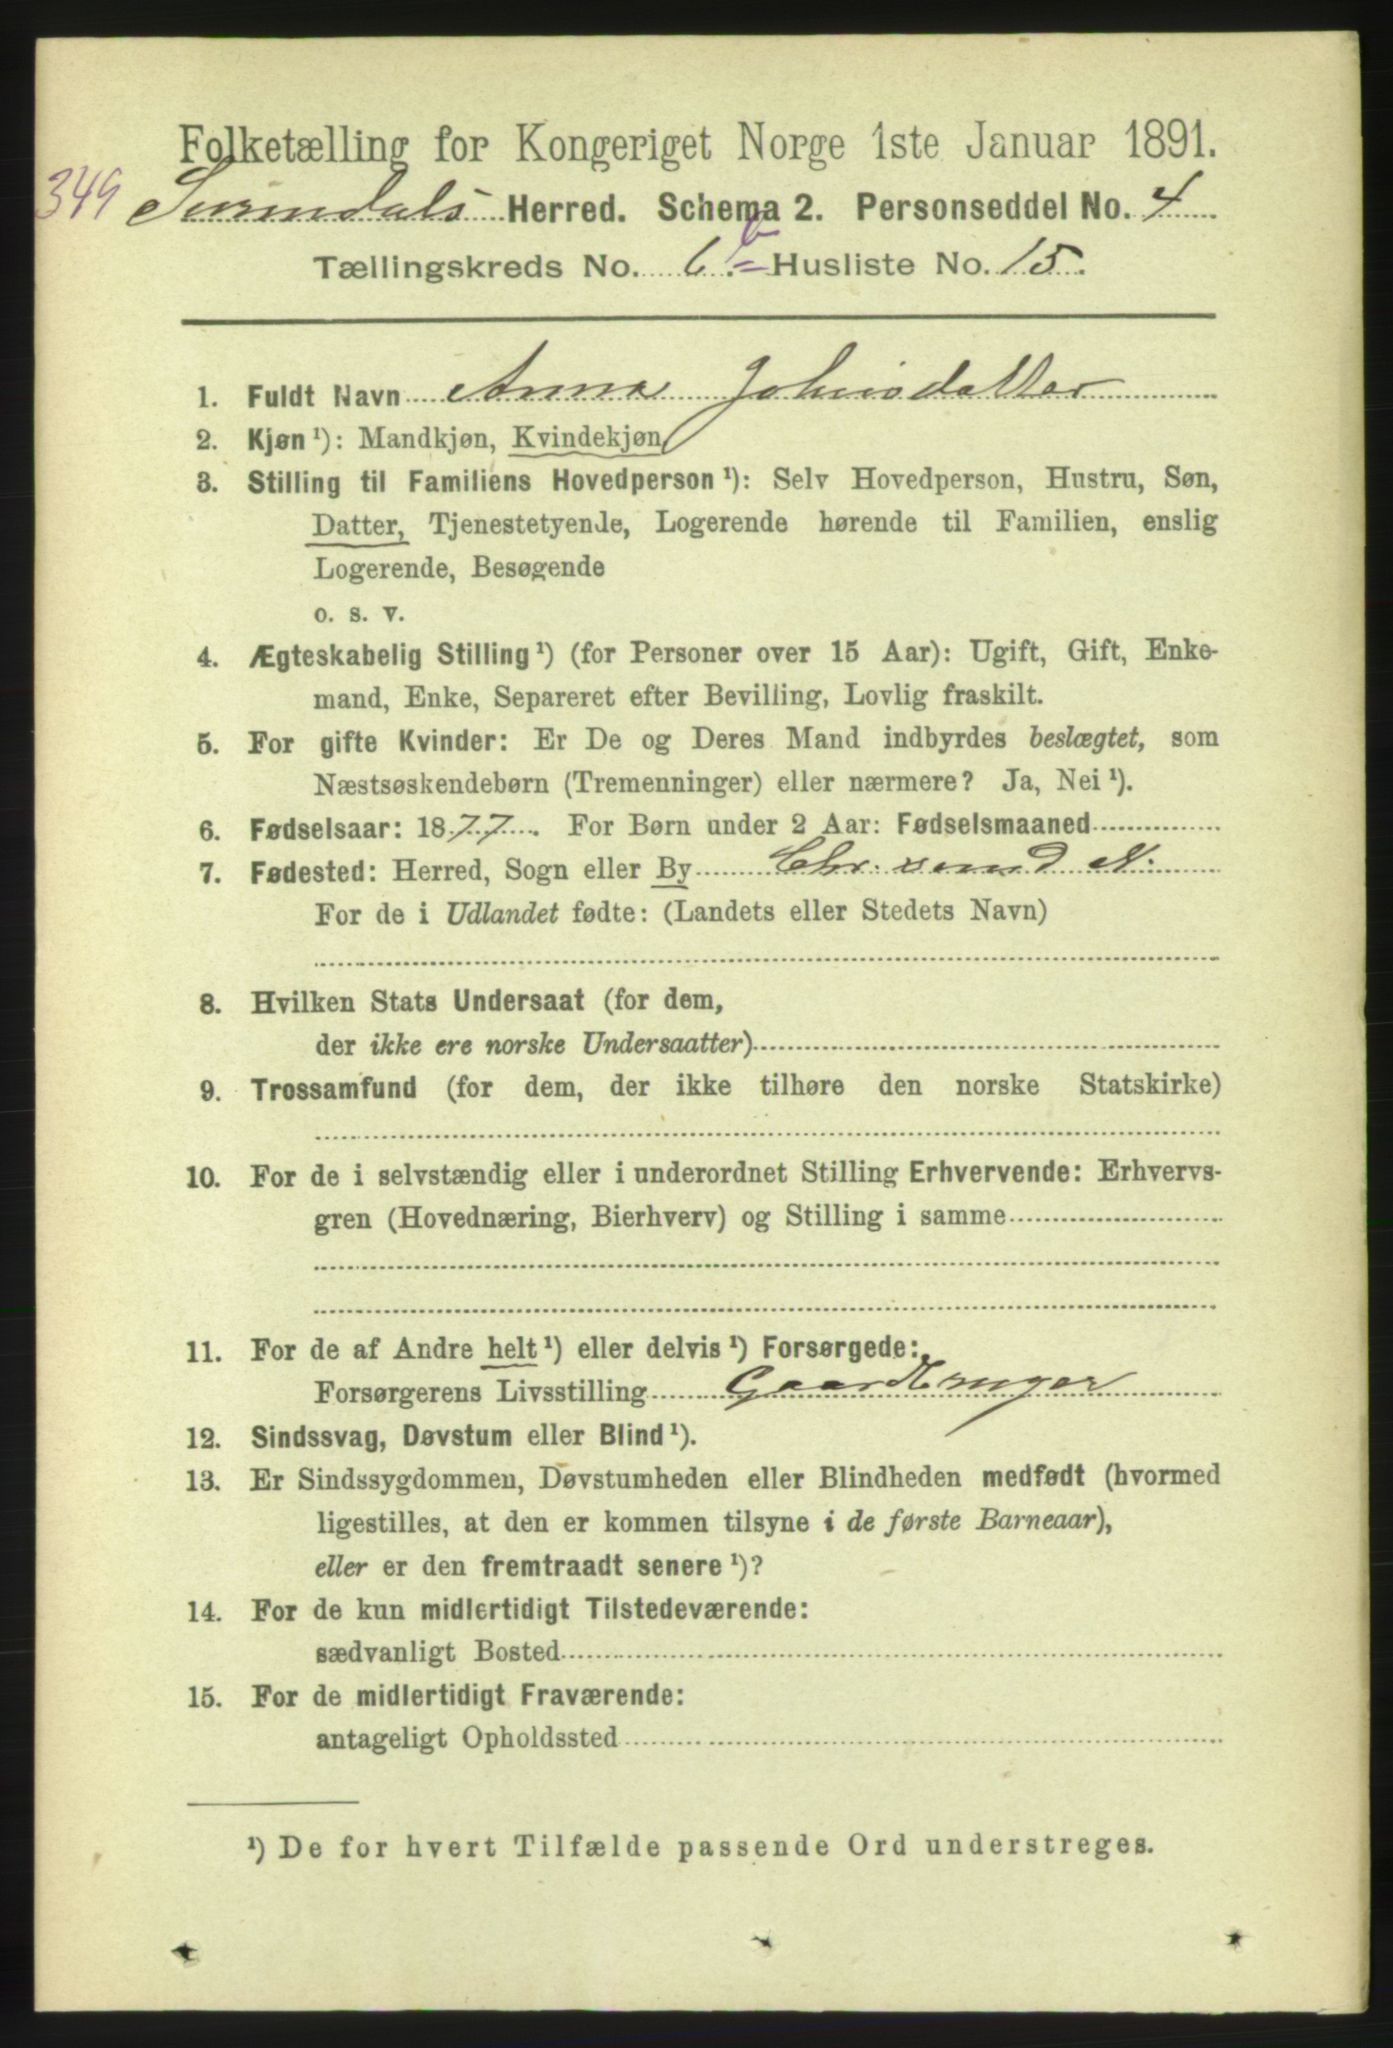 Folketælling for Kongeriget Norge 1ste Januar 1891.
349 Surendals Herred. Schema 2. Personseddel No. 4
Tællingskreds No. 6. b Husliste No. 15.
1. Fuldt Navn Anna Johnsdatter
2. Kjøn ¹): Mandkjøn, Kvindekjøn
3. Stilling til Familiens Hovedperson ¹): Selv Hovedperson, Hustru, Søn,
Datter, Tjenestetyende, Logerende hørende til Familien, enslig
Logerende, Besøgende
o. s. v.
4. Ægteskabelig Stilling ¹) (for Personer over 15 Aar): Ugift, Gift, Enke-
mand, Enke, Separeret efter Bevilling, Lovlig fraskilt.
5. For gifte Kvinder: Er De og Deres Mand indbyrdes beslægtet, som
Næstsøskendebørn (Tremenninger) eller nærmere? Ja, Nei ¹).
6. Fødselsaar: 1877. For Børn under 2 Aar: Fødselsmaaned
7. Fødested: Herred, Sogn eller By Chr.sund N:
For de i Udlandet fødte: (Landets eller Stedets Navn)
8. Hvilken Stats Undersaat (for dem,
der ikke ere norske Undersaatter)
9. Trossamfund (for dem, der ikke tilhøre den norske Statskirke)
10. For de i selvstændig eller i underordnet Stilling Erhvervende: Erhvervs-
gren (Hovednæring, Bierhverv) og Stilling i samme
11. For de af Andre helt ¹) eller delvis ¹) Forsørgede:
Forsørgerens Livsstilling Gaardbruger
12. Sindssvag, Døvstum eller Blind ¹).
13. Er Sindssygdommen, Døvstumheden eller Blindheden medfødt (hvormed
ligestilles, at den er kommen tilsyne i de første Barneaar),
eller er den fremtraadt senere ¹)?
14. For de kun midlertidigt Tilstedeværende:
sædvanligt Bosted
15. For de midlertidigt Fraværende:
antageligt Opholdssted
¹) De for hvert Tilfælde passende Ord understreges.